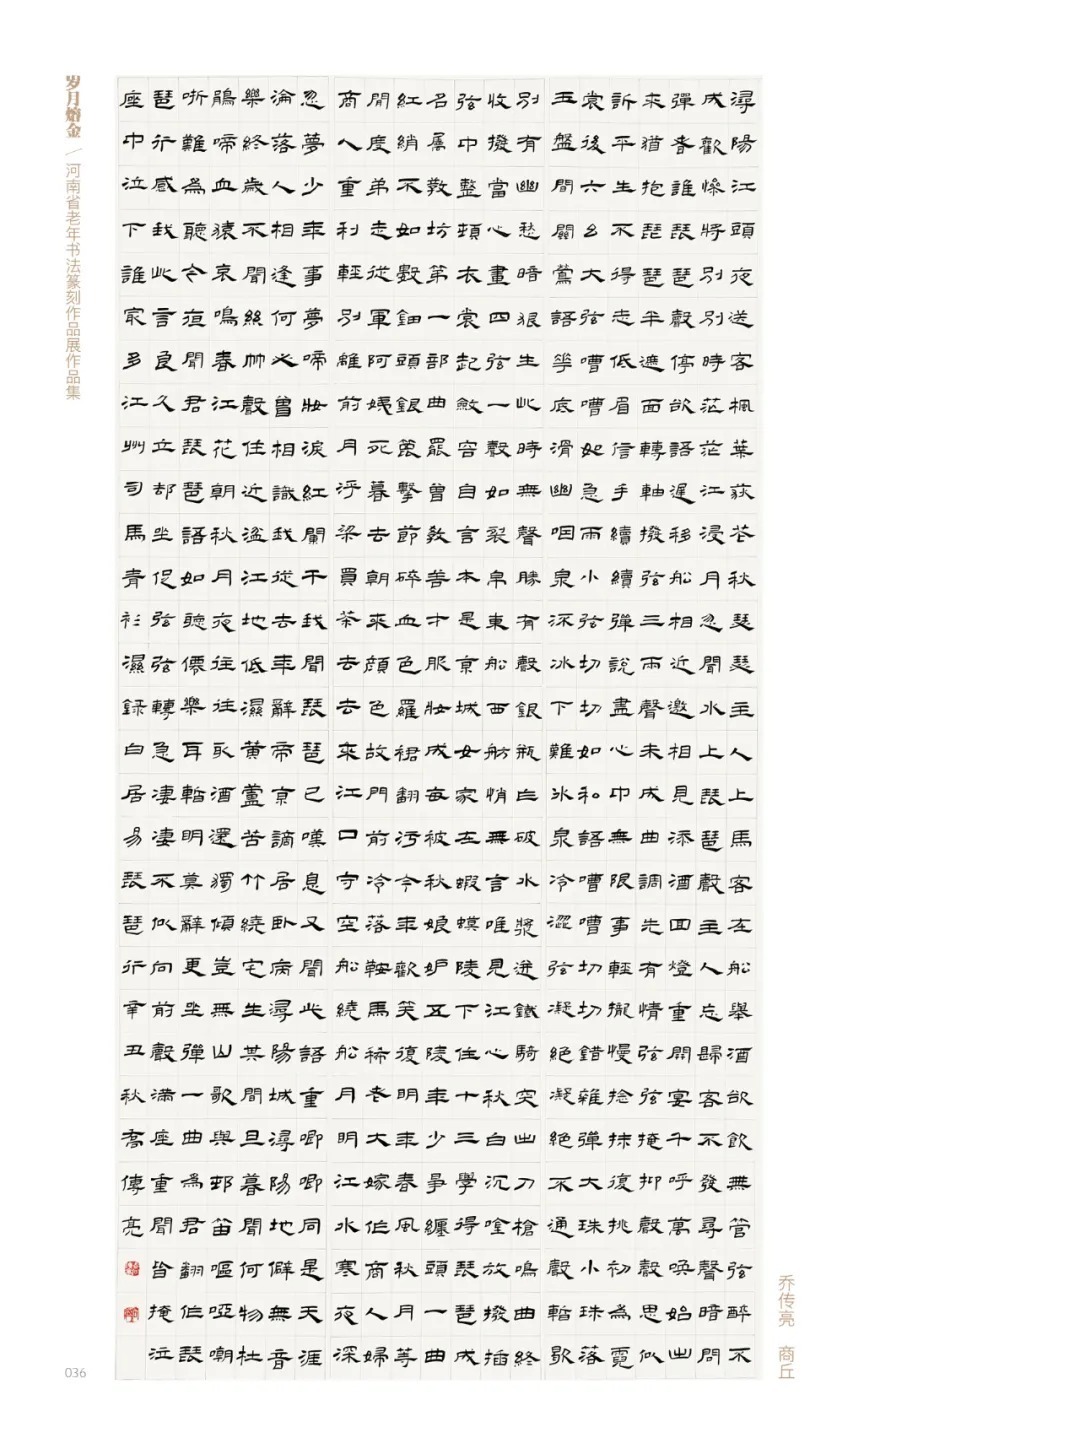 潯陽江頭夜送客楓葉荻花秋瑟瑟主人上馬客在船舉酒欲飲無管弦醉不
成歡慘將別別時茫茫江浸月忽聞水上琵琶聲主人忘歸客不發尋聲暗問
彈者誰琵琶聲停欲語遲移船相近邀相見添酒回燈重開宴千呼萬喚始出
來猶抱琵琶半遮面轉軸撥弦三兩聲未成曲調先有情弦弦掩抑聲聲思似
訴平生不得志低眉信手續續彈說盡心中無限事輕攏慢捻抹復挑初為霓
裳後六幺大弦嘈嘈如急雨小弦切切如私語嘈嘈切切錯雜彈大珠小珠落
玉盤間關鶯語花底滑幽咽泉流冰下難冰泉冷澀弦凝絕凝絕不通聲暫歇
別有幽愁暗恨生此時無聲勝有聲銀瓶乍破水漿迸鐵騎突出刀槍鳴曲終
收撥當心畫四弦一聲如裂帛東船西舫悄無言唯見江心秋白沉吟放撥插
弦中整頓衣裳起斂容自言本是京城女家在蝦蟆陵下住十三學得琵琶成
名屬教坊第一部曲罷曾教善才服妝成每被秋娘妒五陵年少爭纏頭一曲
紅綃不如數鈿頭銀篦擊節碎血色羅裙翻污今年歡笑復明年春風秋月等
閒度弟走從軍阿姨死暮去朝來顏色故門前冷落鞍馬稀老大嫁作商人婦
商人重利輕別離前月浮梁買茶去去來江口守空船繞船月明江水寒夜深
忽夢少年事夢啼妝淚紅闌干我聞琵琶已嘆息又聞此語重唧唧同是天涯
淪落人相逢何必曾相識我從去年辭帝京謫居臥病潯陽城潯陽地僻無音
樂終歲不聞絲竹聲住近湓江地低濕黃蘆苦竹繞宅生其間旦暮聞何物杜
鵑啼血猿哀鳴春江花朝秋月夜往往取酒還獨傾豈無山歌與邨笛嘔啞嘲
哳難為聽今夜聞君琵琶語如聽僊樂耳暫明莫辭更坐彈一曲為君翻作琵
琶行感我此言良久立却坐促弦弦轉急淒淒不似向前聲滿座重聞皆掩泣
座中泣下誰最多江州司馬青衫濕錄白居易琵琶行辛丑秋喬傳亮
乔传亮 商丘
岁月熔金／河南省老年书法篆刻作品展作品集
036